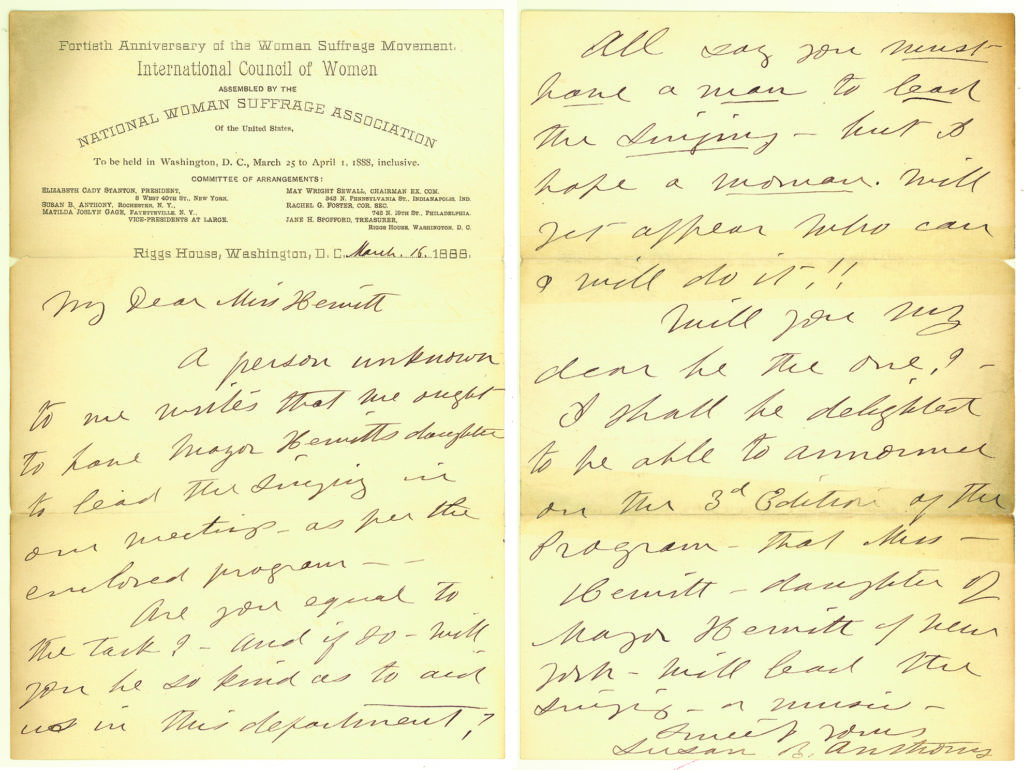 Fortieth Anniversary of the Woman Suffrage Movement.
International Council of Women
ASSEMBLED BY THE
NATIONAL WOMAN SUFFRAGE ASSOCIATION
Of the United States,
To be held in Washington, D. C., March 25 to April 1, 1888, inclusive.
COMMITTEE OF ARRANGEMENTS:
ELIZABETH CADY STANTON, PRESIDENT,
8 WEST 40TH ST., NEW YORK.
SUSAN B. ANTHONY, ROCHESTER, N. Y.,
MATILDA JOSLYN GAGE, FAYETTEVILLE, N. Y.,
VICE-PRESIDENTS AT LARGE.
MAY WRIGHT SEWALL, CHAIRMAN EX. COM.
343 N. PENNSYLVANIA ST., INDIANAPOLIS, IND.
RACHEL G. FOSTER, COR. SEC.
748 N. 19TH ST., PHILADELPHIA.
JANE H. SPOFFORD, TREASURER,
RIGGS HOUSE, WASHINGTON, D. C.
Riggs House, Washington, D. C. March. 16. 1888.
My Dear Miss Hewitt
A person unknown
to me writes that we ought
to have Mayor Hewitts daughter
to lead the singing in
our meetings - as per the
enclosed program - -
Are you equal to
the task? - And if so - will
you be so kind as to aid
us in this department,?
All say you must
have a man to lead
the singing - but I
hope a woman. will
yet appear who can
& will do it!!
Will you my
dear be the one,? -
I shall be delighted
to be able to announce
on the 3d Edition of the
Program - that Miss -
Hewitt - daughter of
Mayor Hewitt of New
York - will lead the
singing - or music -
Sincerely yours
Susan B. Anthony